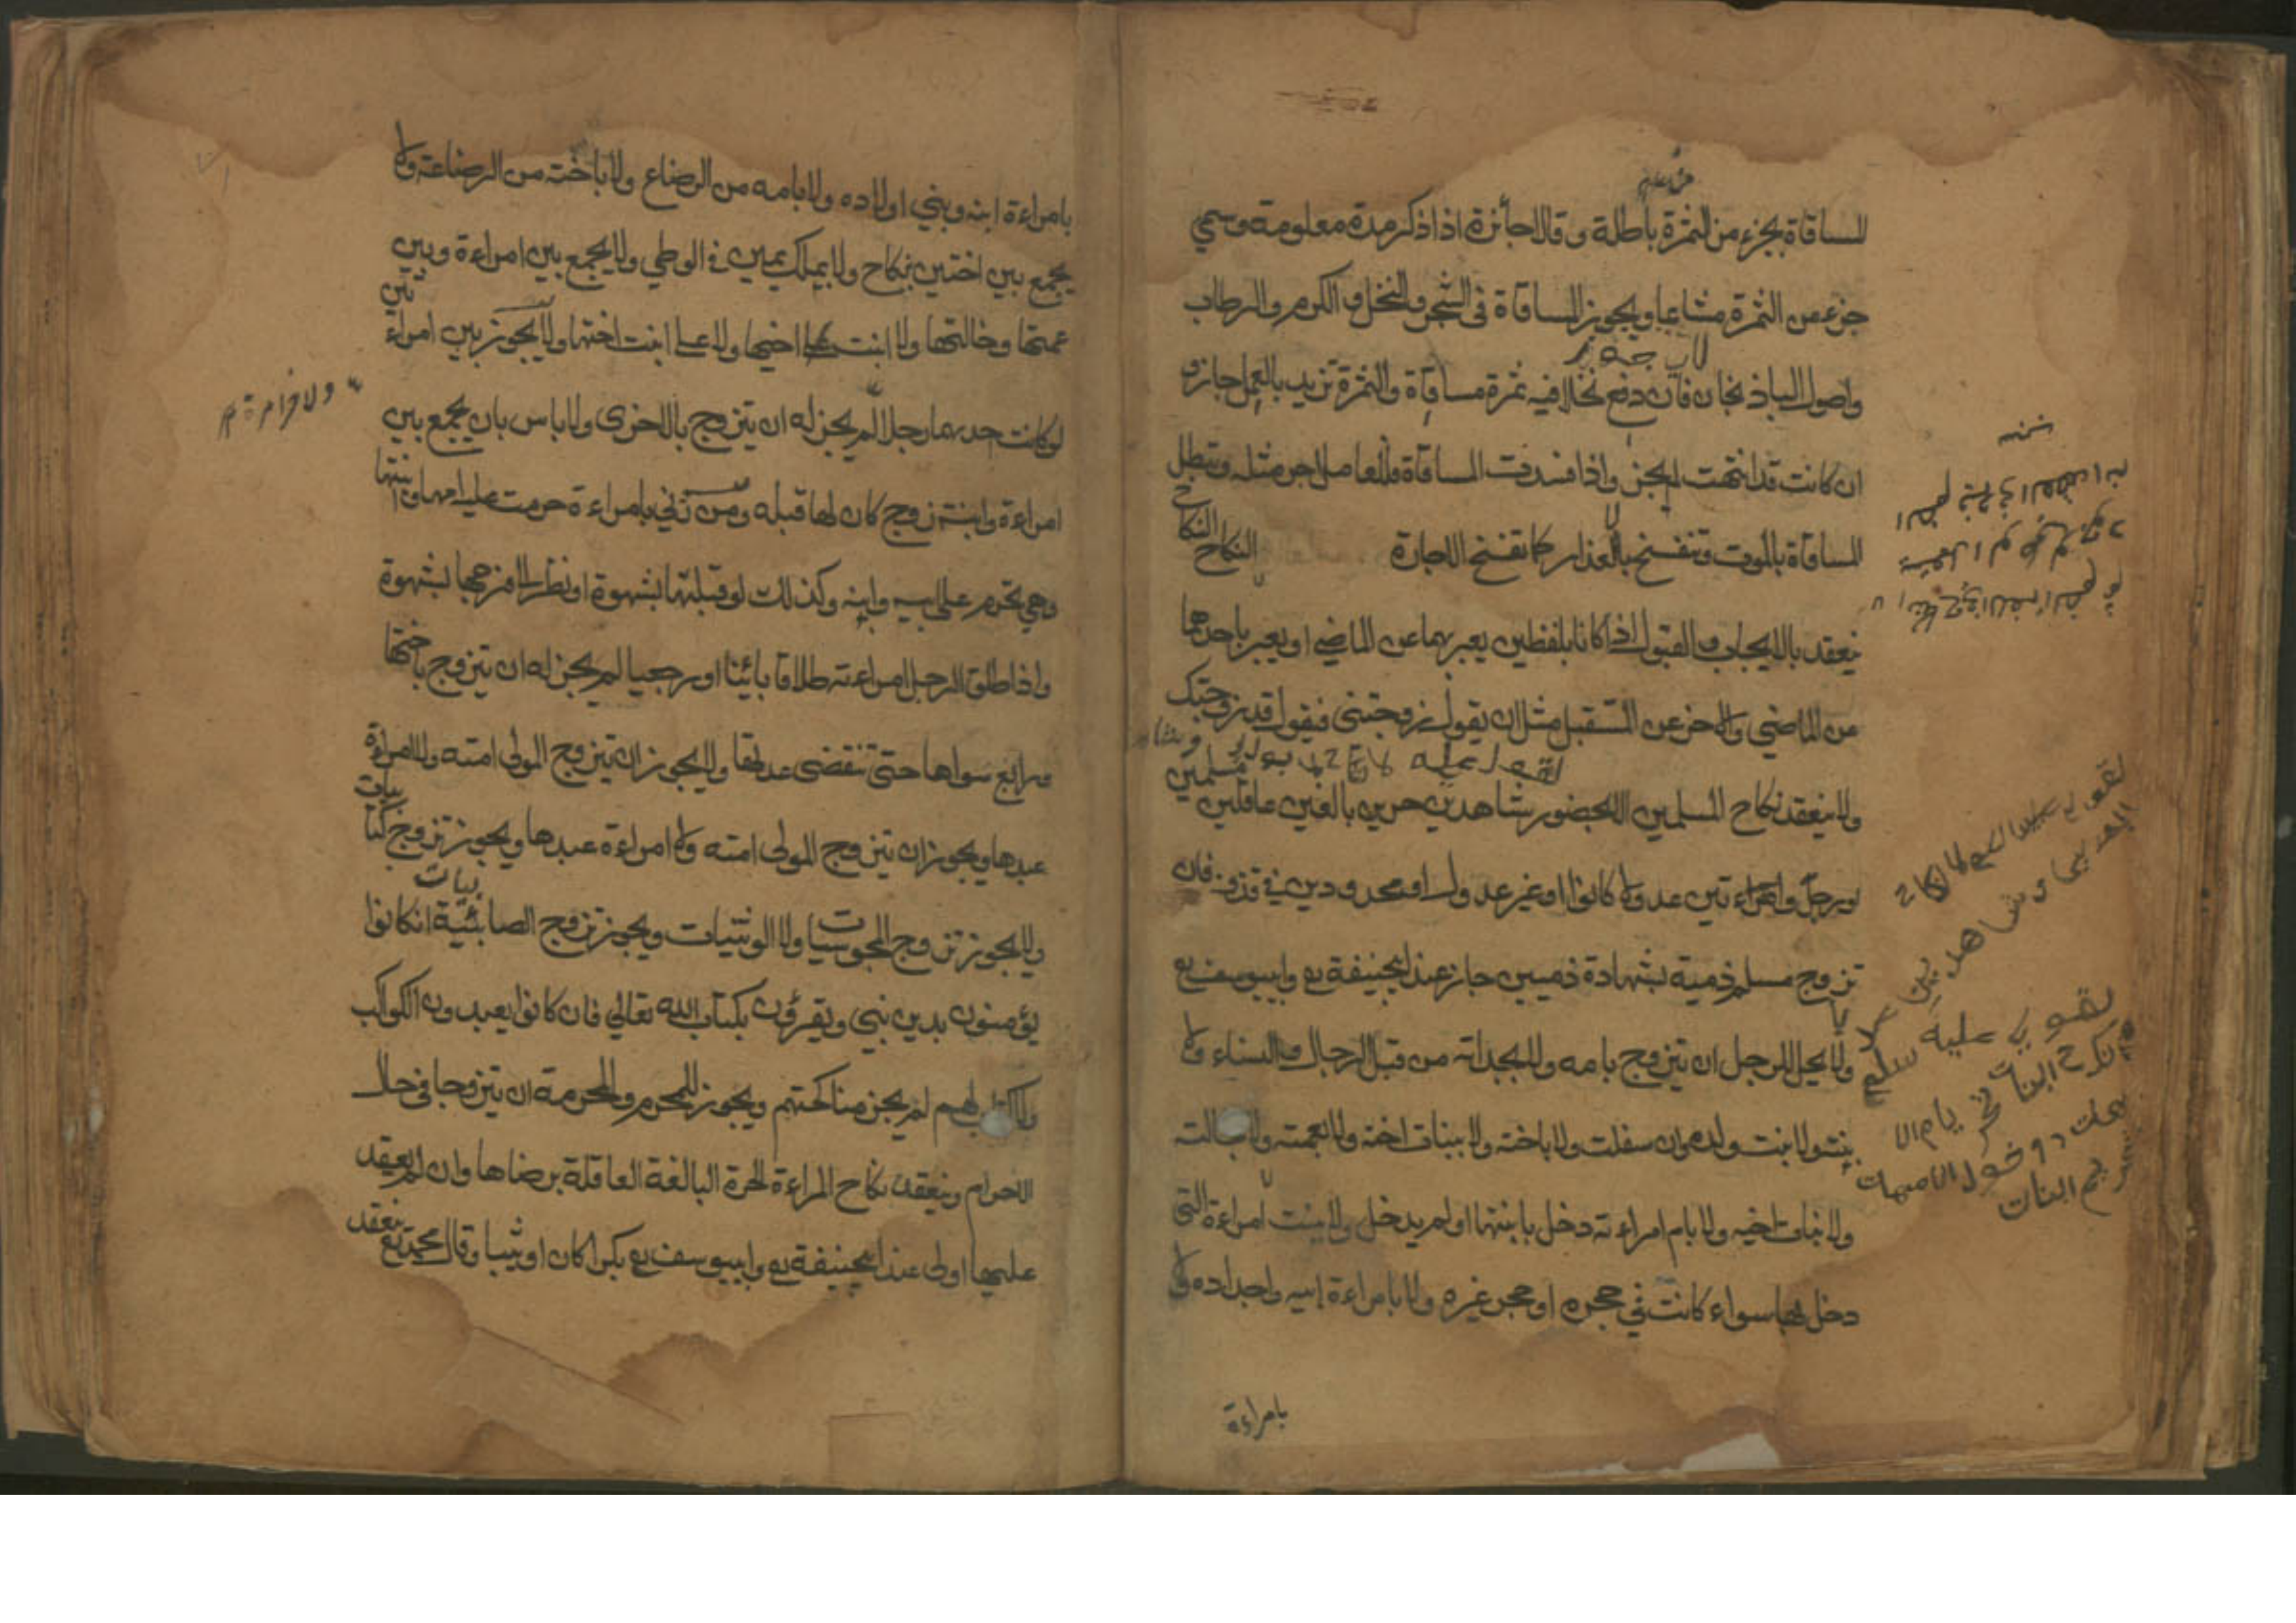 المساقاة بجزء من الثمرة باطلة وقالا جائزة اذا ذكر مدة معلومة وسمي
جزء من الثمرة مشاعا ويجوز المساقاة في الشجر والنخل والكرم والرطاب
واصول الباذنجان فان دفع نخلا فيه ثمرة مساقاة والثمرة تزيد بالعمل جاز و
ان كانت قد انتهت لم يجز واذا فسدت المساقاة فللعامل اجر مثله وتبطل
المساقاة بالموت وتنفسخ بالاعذار كما تفسخ الاجارة
النكاح النكاح
ينعقد بالايجاب والقبول اذا كانا بلفظين يعبر بهما عن الماضي او يعبر باحدهما
عن الماضي والاخر عن المستقبل مثل ان يقول زوجتني فيقول قد زوجتك
ولا ينعقد نكاح المسلمين الا بحضور شاهدين حرين بالغين عاقلين مسلمين
او رجل وامراءتين عدولا كانوا او غير عدول او محدودين في قذف فان
تزوج مسلم ذمية بشهادة ذميين جاز عند ابيحنيفة رح وابييوسف رح
ولا يحل للرجل ان يتزوج بامه ولا بجداته من قبل الرجال والنساء ولا
بنته ولا بنت ولده وان سفلت ولا باخته ولا ببنات اخته ولا بعمته ولا بخالته
ولا بنات اخيه ولا بام امراءته دخل بابنتها او لم يدخل ولا ببنت امراءة التي
دخل بها سواء كانت في حجره او حجر غيره ولا بامراءة ابيه واجداده ولا
بامراءة
لقوله عليه السلم لا نكاح
الا بولي وشاهدين
لقوله عليه سلم
نكاح البنات يحرم الامهات
ودخول الامهات
يحرم البنات
بامراءة ابنه وبني اولاده ولا بامه من الرضاع ولا باخته من الرضاعة ولا
يجمع بين اختين بنكاح ولا بملك يمين في الوطي ولا يجمع بين امراءة وبين
عمتها وخالتها ولا ابنت اخيها ولا على ابنت اختها ولا يجوز بين امراءتين
لو كانت احديهما رجلا لم يجز له ان يتزوج بالاخرى ولا باس بان يجمع بين
امراءة وابنة زوج كان لها قبله ومن زني بامراءة حرمت عليه امها وابنتها
وهي تحرم على ابيه وابنه وكذلك لو قبلتها بشهوة او نظر الى فرجها بشهوة
واذا طلق الرجل امراءته طلاقا بائنا او رجعيا لم يجز له ان يتزوج باختها
ورابع سواها حتى تنقضى عدتها ولا يجوز ان يتزوج المولى امته ولا المراءة
عبدها ويجوز ان يتزوج المولى امته ولا امراءة عبدها ويجوز تزوج كتابيات
ولا يجوز تزوج المجوسيات ولا الوثنيات ويجوز تزوج الصابئية ان كانوا
يؤمنون بدين نبي ويقرؤن بكتاب الله تعالى فان كانوا يعبدون الكواكب
ولا كتاب لهم لم يجز مناكحتهم ويجوز للمحرم والمحرمة ان يتزوجا في حال
الاحرام وينعقد نكاح المراءة الحرة البالغة العاقلة برضاها وان لم يعقد
عليها اولى عند ابيحنيفة رح وابييوسف رح بكرا كان او ثيبا وقال محمد رح ينعقد